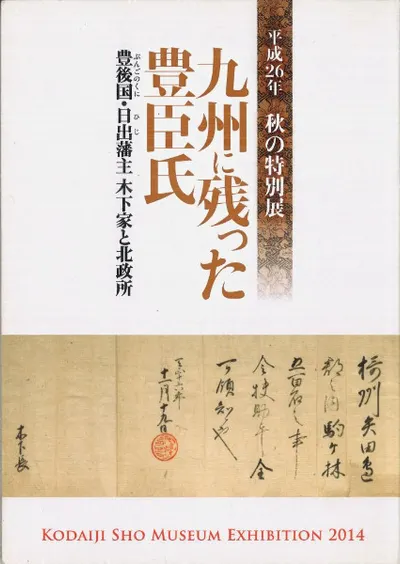 平成26年 秋の特別展
九州に残った
豊臣氏
ぶんごのくに ひじ
豊後国・日出藩主 木下家と北政所
郡之内駒ヶ林
五百石之事
令扶助畢全
可領知也
十一月十九日
木下
KODAIJI SHO MUSEUM EXHIBITION 2014